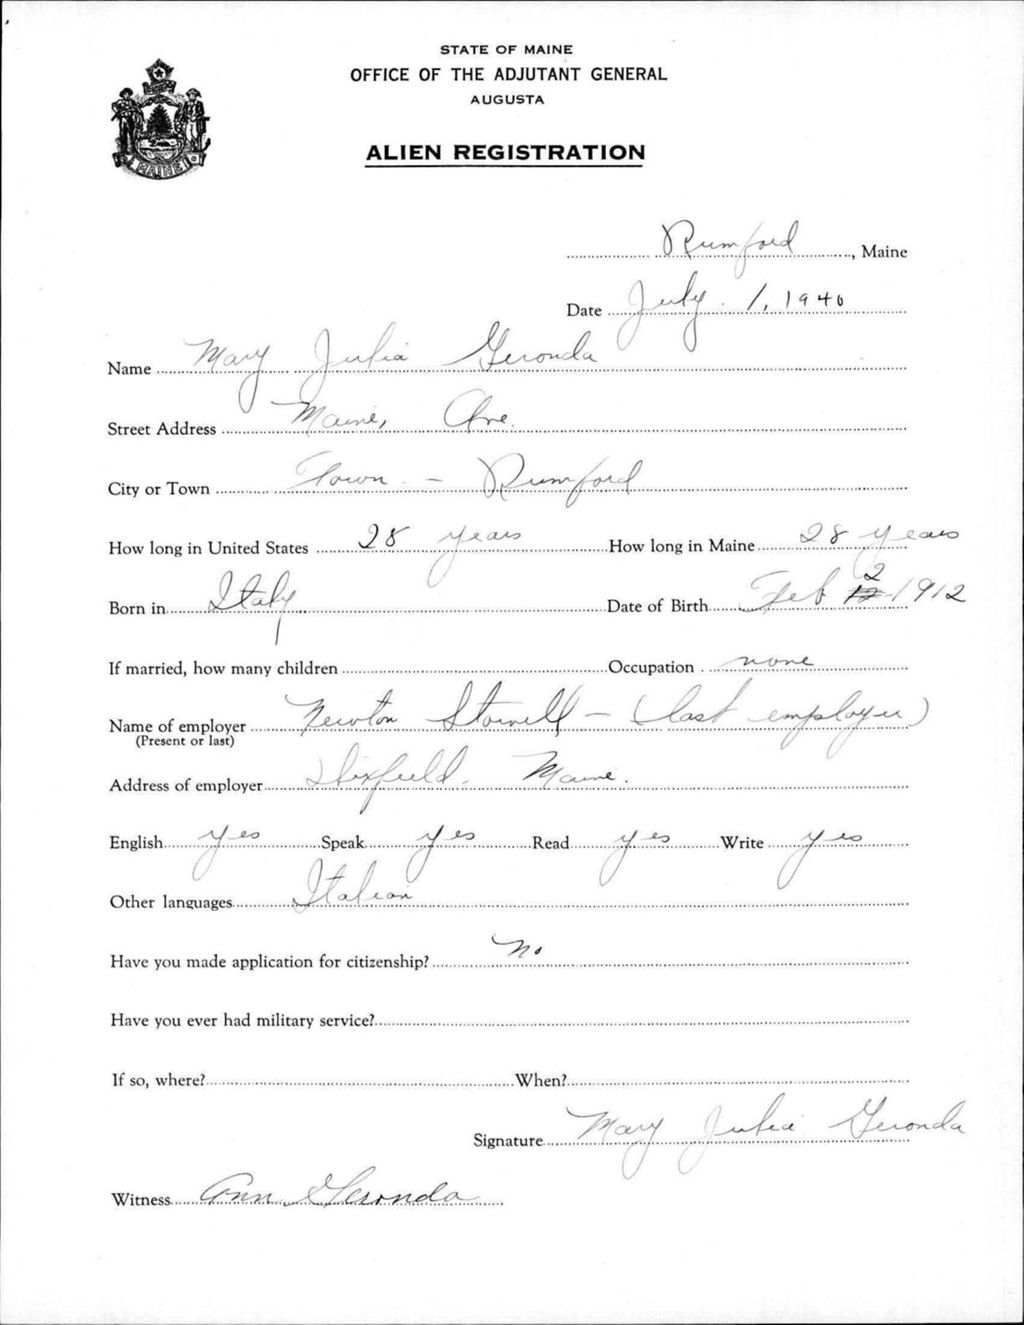 STATE OF MAINE
OFFICE OF THE ADJUTANT GENERAL
AUGUSTA
MAINE
ALIEN REGISTRATION
Rumford, Maine
Date July. 1, 1940
Name Mary Julia Geronda
Street Address Maine, Ave.
City or Town Town - Rumford
How long in United States 28 years How long in Maine 28 years
Born in Italy Date of Birth Feb 12 2 1912
If married, how many children Occupation none
Name of employer Newton Stowell - (last employer)
(Present or last)
Address of employer Dixfield. Maine.
English yes Speak yes Read yes Write yes
Other languages Italian
Have you made application for citizenship? No
Have you ever had military service?
If so, where? When?
Signature Mary Julia Geronda
Witness Ann Geronda